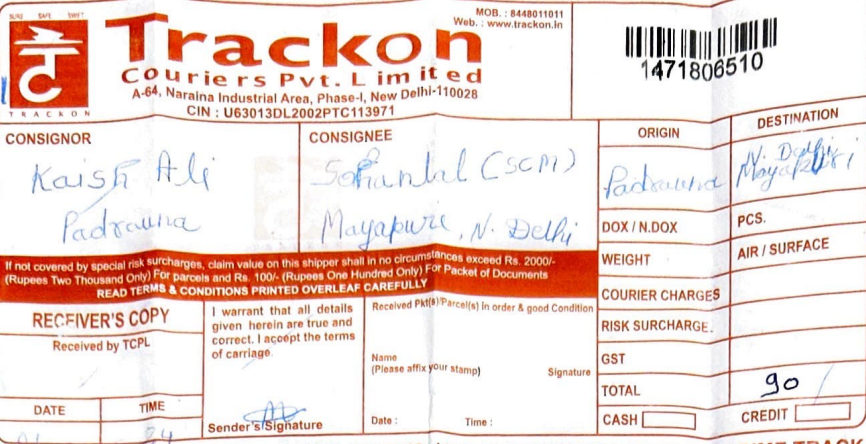 SURE SAFE SWIFT
TRACKON
Trackon
Couriers Pvt. Limited
A-64, Naraina Industrial Area, Phase-I, New Delhi-110028
CIN : U63013DL2002PTC113971
MOB. : 8448011011
Web. : www.trackon.in
1471806510
CONSIGNOR
Kaish Ali
Padrauna
CONSIGNEE
Sohanlal (SCM)
Mayapuri, N. Delhi
ORIGIN
Padrauna
DESTINATION
N. Delhi
Mayapuri
DOX / N.DOX
PCS.
WEIGHT
AIR / SURFACE
COURIER CHARGES
RISK SURCHARGE.
GST
TOTAL
90
CASH
CREDIT
If not covered by special risk surcharges, claim value on this shipper shall in no circumstances exceed Rs. 2000/-
(Rupees Two Thousand Only) For parcels and Rs. 100/- (Rupees One Hundred Only) For Packet of Documents
READ TERMS & CONDITIONS PRINTED OVERLEAF CAREFULLY
RECEIVER'S COPY
Received by TCPL
DATE
TIME
24
I warrant that all details
given herein are true and
correct. I accept the terms
of carriage.
Sender's Signature
Received Pkt(s)/Parcel(s) in order & good Condition
Name
(Please affix your stamp)
Signature
Date :
Time :